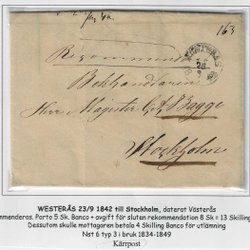 163
Recommend
WESTERÅS
Bokhandlaren
Herr Magister C A Bagge
Stockholm
WESTERÅS 23/9 1842 till Stockholm, daterat Västerås
mmenderas. Porto 5 Sk. Banco + avgift för sluten rekommendation 8 Sk = 13 Skilling
Dessutom skulle mottagaren betala 4 Skilling Banco för utlämning
Nst 6 typ 3 i bruk 1834-1849
Kärrpost